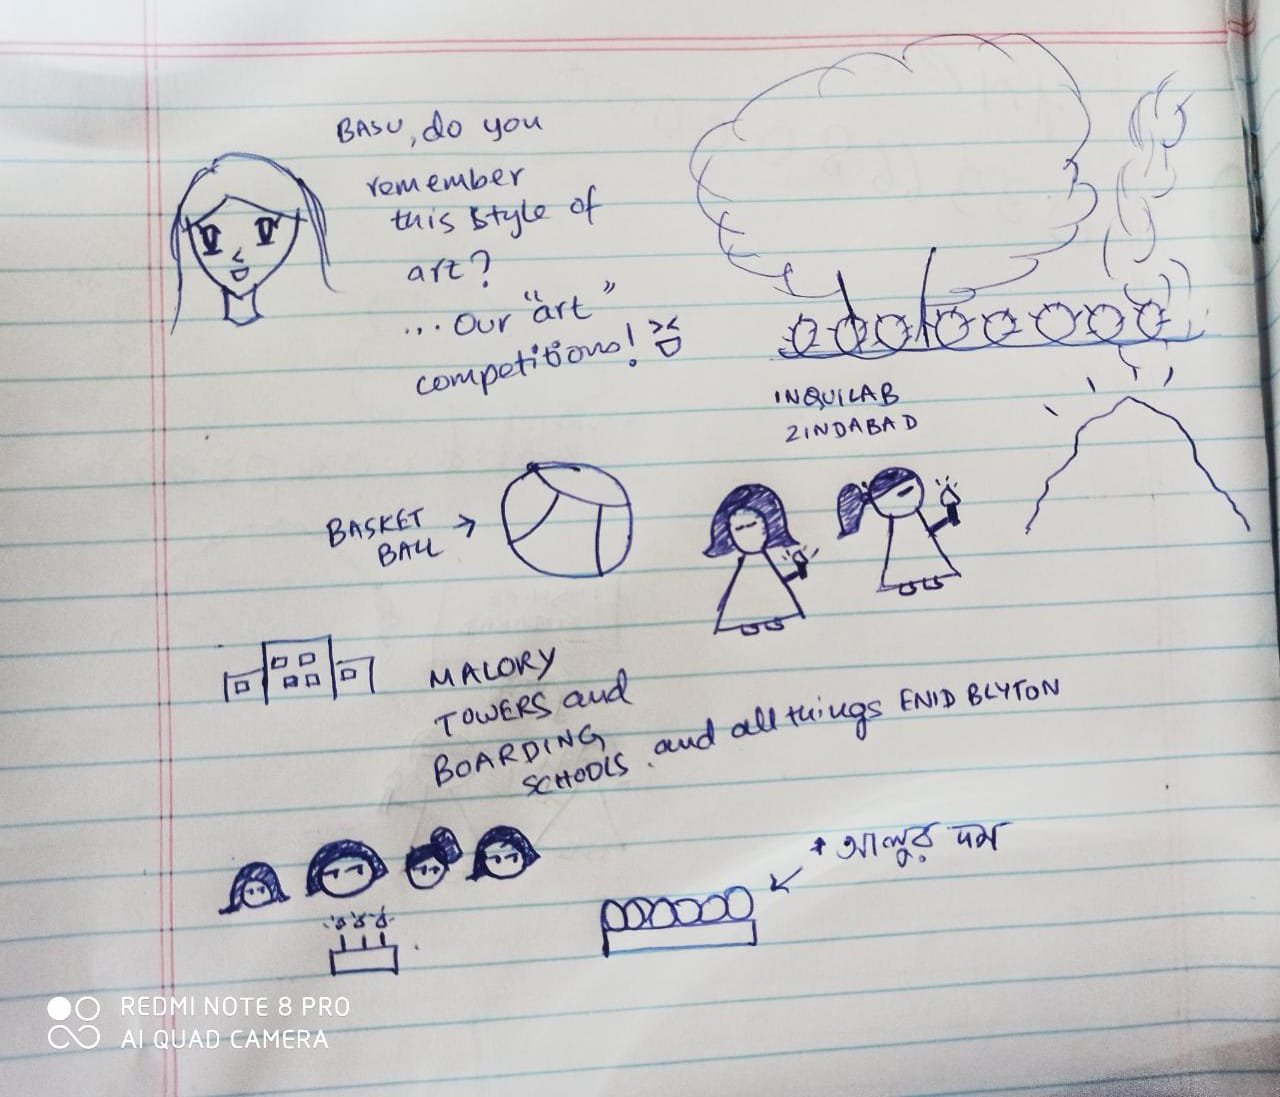 BASU, do you
remember
this style of
art?
... Our "art"
competitions!
INQUILAB
ZINDABAD
BASKET
BALL
MALORY
TOWERS and
BOARDING
SCHOOLS. and all things ENID BLYTON
* আলুর দম
REDMI NOTE 8 PRO
AI QUAD CAMERA